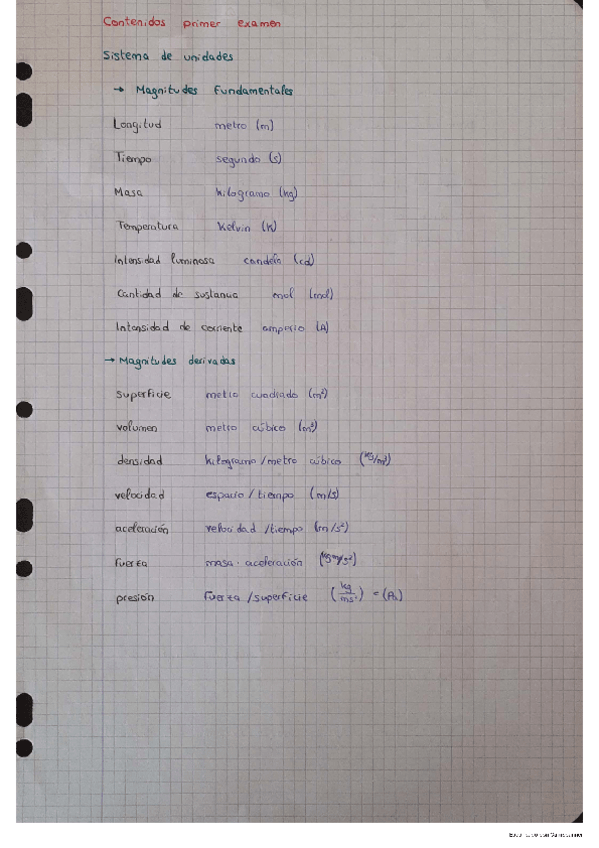 Contenidos primer examen
Sistema de unidades
→ Magnitudes Fundamentales
Longitud metro (m)
Tiempo segundo (s)
Masa kilogramo (kg)
Temperatura kelvin (K)
Intensidad luminosa candela (cd)
Cantidad de sustancia mol (mol)
Intensidad de corriente amperio (A)
→ Magnitudes derivadas
superficie metro cuadrado (m²)
volumen metro cúbico (m³)
densidad kilogramo/metro cúbico (kg/m³)
velocidad espacio/tiempo (m/s)
aceleración velocidad/tiempo (m/s²)
fuerza masa · aceleración (kg m/s²)
presión fuerza/superficie (kg/ms²) = (Pa)